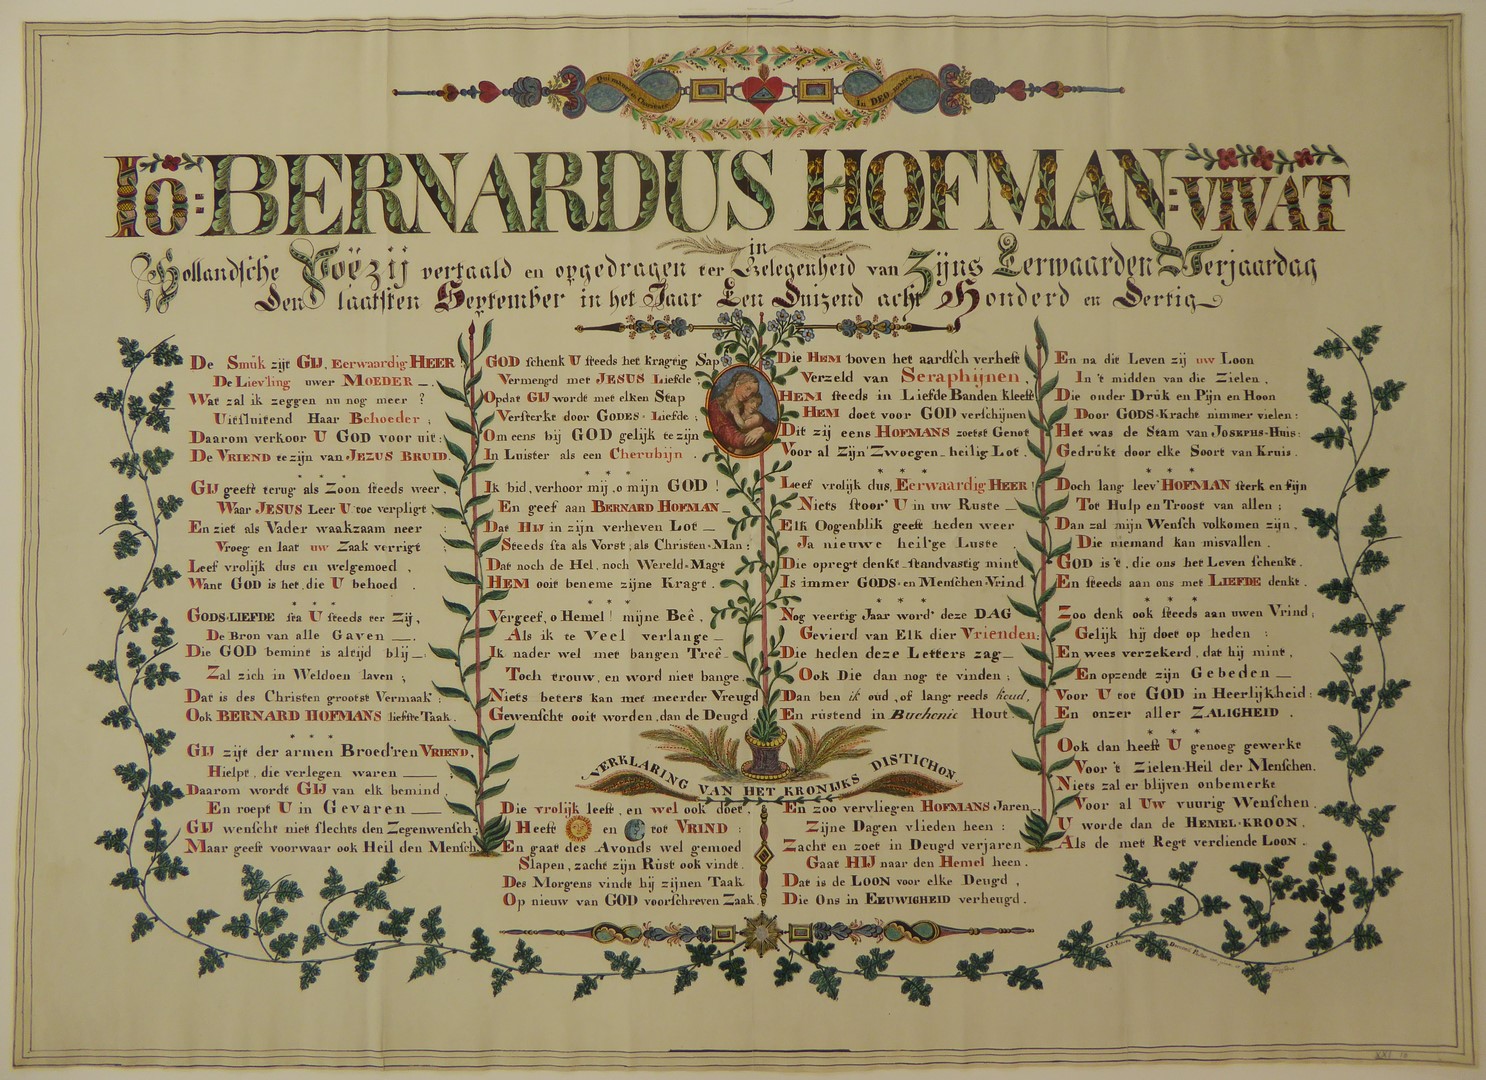 Qui manet in Charitate
In DEO manet
IO: BERNARDUS HOFMAN: VIVAT
in
Hollandsche Poëzij vertaald en opgedragen ter Gelegenheid van Zijns Eerwaarden Verjaardag
Den laatsten September in het Jaar Een Duizend acht Honderd en Dertig
De Smúk zijt GIJ, Eerwaardig HEER
De Liev'ling uwer MOEDER _.
Wat zal ik zeggen nu nog meer ?
Uitsluitend Haar Behoeder ;
Daarom verkoor U GOD voor uit:
De VRIEND te zijn van JEZUS BRUID.
* * *
GIJ geeft terug als Zoon steeds weer,
Waar JESUS Leer U toe verpligt ;
En ziet als Vader waakzaam neer :
Vroeg en laat uw Zaak verrigt
Leef vrolijk dus en welgemoed ,
Want GOD is het, die U behoed .
* * *
GODS-LIEFDE sta U steeds ter Zij,
De Bron van alle Gaven __.
Die GOD bemint is altijd blij _,
Zal zich in Weldoen laven ;
Dat is des Christen grootst Vermaak :
Ook BERNARD HOFMANS liefste Taak.
* * *
GIJ zijt der armen Broed'ren VRIEND,
Hielpt , die verlegen waren ___ ;
Daarom wordt GIJ van elk bemind,
En roept U in Gevaren ___
GIJ wenscht niet slechts den Zegenwensch;
Maar geeft voorwaar ook Heil den Mensch.
GOD schenk U steeds het kragtig Sap
Vermengd met JESUS Liefde ;
Opdat GIJ wordt met elken Stap
Versterkt door GODES - Liefde ;
Om eens bij GOD gelijk te zijn
In Luister als een Cherubijn .
* * *
Ik bid, verhoor mij, o mijn GOD !
En geef aan BERNARD HOFMAN _
Dat HIJ in zijn verheven Lot _
Steeds sta als Vorst, als Christen-Man :
Dat noch de Hel, noch Wereld-Magt
HEM ooit beneme zijne Kragt .
* * *
Vergeef, o Hemel ! mijne Beê ,
Als ik te Veel verlange _
Ik nader wel met bangen Treê _
Toch trouw, en word niet bange.
Niets beters kan met meerder Vreugd
Gewenscht ooit worden, dan de Deugd .
Die HEM boven het aardsch verheft
Verzeld van Seraphijnen ,
HEM steeds in Liefde Banden kleeft
HEM doet voor GOD verschijnen
Dit zij eens HOFMANS zoetst Genot
Voor al Zijn Zwoegen_ heilig Lot .
* * *
Leef vrolijk dus, Eerwaardig HEER !
Niets stoor' U in uw Ruste _
Elk Oogenblik geeft heden weer
Ja nieuwe heil'ge Luste .
Die opregt denkt_ standvastig mint
Is immer GODS- en Menschen-Vrind
* * *
Nog veertig Jaar word' deze DAG
Gevierd van Elk dier Vrienden:
Die heden deze Letters zag _
Ook Die dan nog te vinden ;
Dan ben ik oud , of lang reeds koud,
En rústend in Buchenie Hout .
En na dit Leven zij uw Loon
In 't midden van die Zielen ,
Die onder Drúk en Pijn en Hoon
Door GODS-Kracht nimmer vielen :
Het was de Stam van JOSEPHS-Huis:
Gedrúkt door elke Soort van Kruis .
* * *
Doch lang leev' HOFMAN sterk en fijn
Tot Hulp en Troost van allen ;
Dan zal mijn Wensch volkomen zijn ,
Die niemand kan misvallen .
GOD is 't , die ons het Leven schenkt.
En steeds aan ons met LIEFDE denkt .
* * *
Zoo denk ook steeds aan uwen Vrind ;
Gelijk hij doet op heden :
En wees verzekerd , dat hij mint ,
En opzendt zijn Gebeden _
Voor U tot GOD in Heerlijkheid :
En onzer aller ZALIGHEID .
* * *
Ook dan heeft U genoeg gewerkt
Voor 't Zielen-Heil der Menschen.
Niets zal er blijven onbemerkt
Voor al Uw vuurig Wenschen .
U worde dan de HEMEL-KROON .
Als de met Regt verdiende LOON .
VERKLARING VAN HET KRONIJKS DISTICHON
Die vrolijk leeft , en wel ook doet ,
Heeft en tot VRIND :
En gaat des Avonds wel gemoed
Slapen , zacht zijn Rúst ook vindt .
Des Morgens vindt hij zijnen Taak
Op nieuw van GOD voorschreven Zaak .
En zoo vervliegen HOFMANS Jaren _,
Zijne Dagen vlieden heen :
Zacht en zoet in Deugd verjaren
Gaat HIJ naar den Hemel heen .
Dat is de LOON voor elke Deugd ,
Die Ons in EEUWIGHEID verheugd .